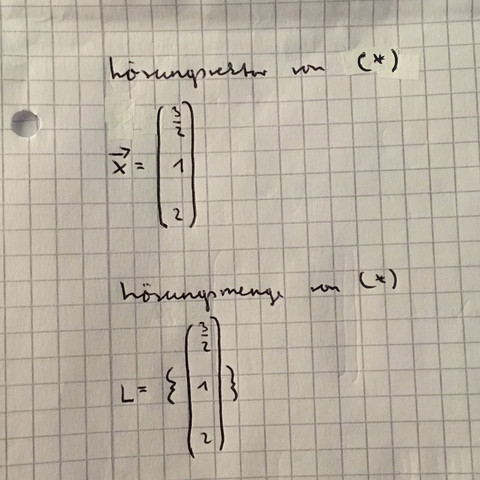 Lösungsvektor von (*)
3
2
x⃗ = 1
2
Lösungsmenge von (*)
3
2
L = { 1 }
2